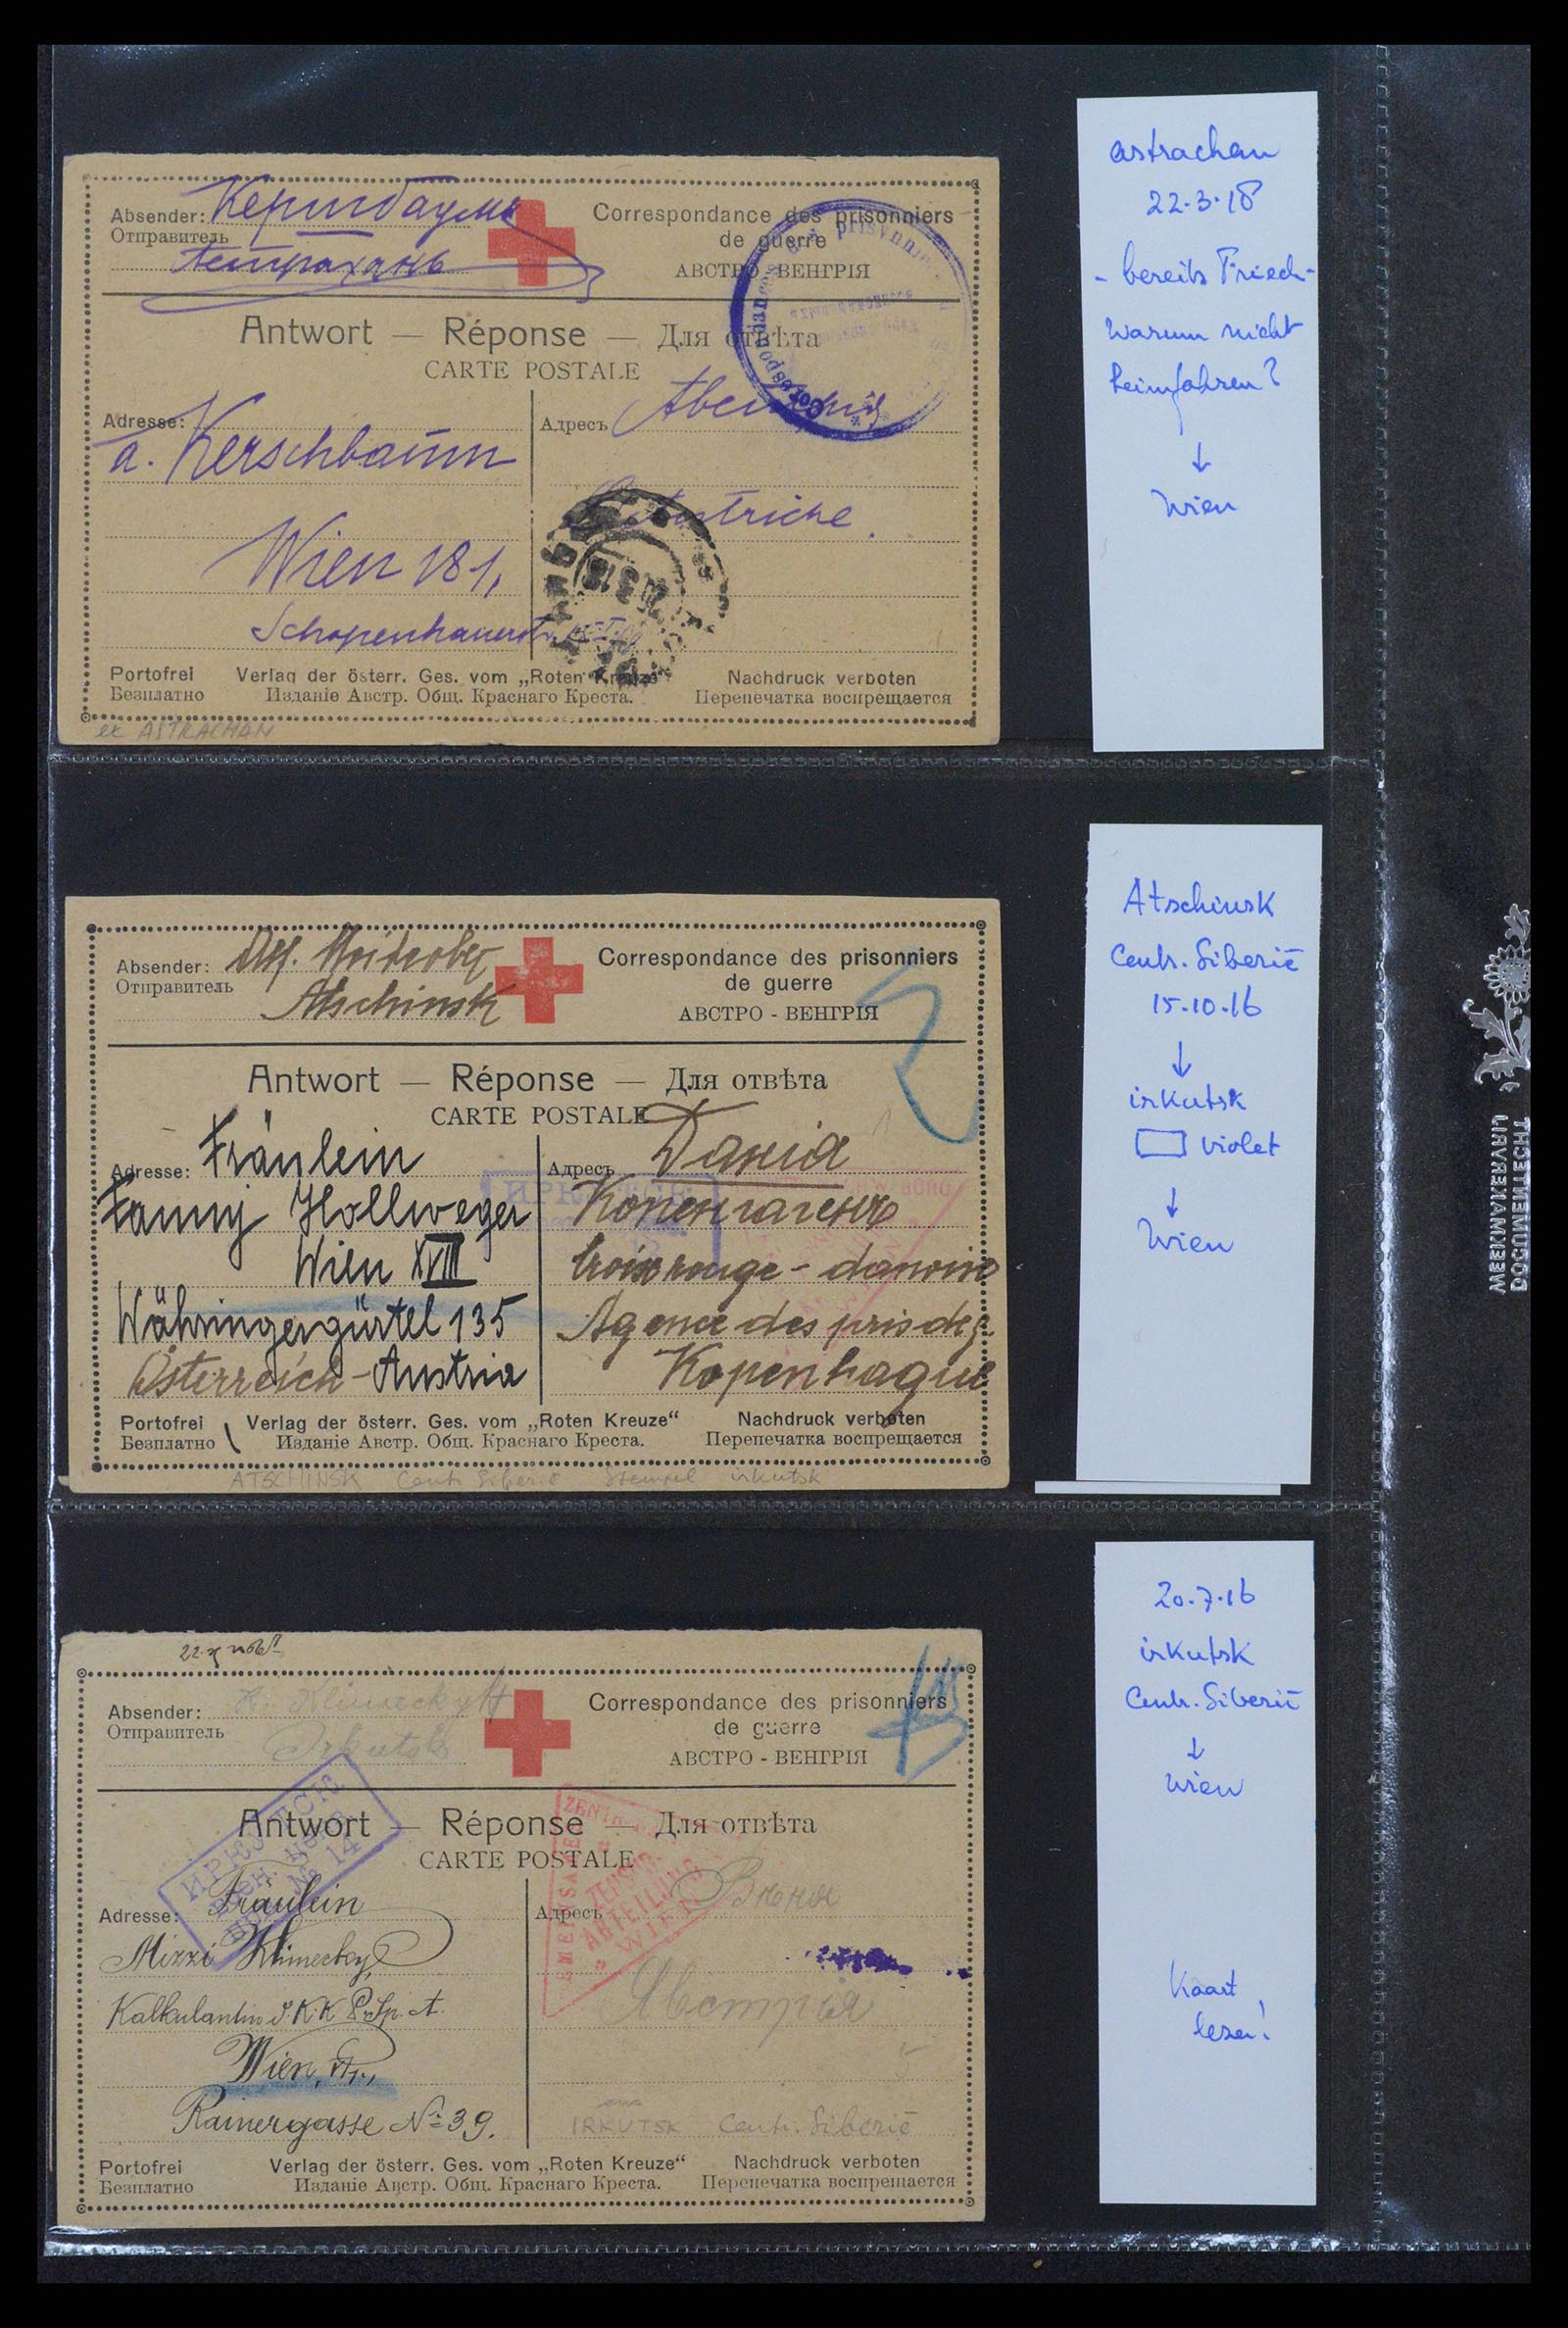 Absender: Кершбаумъ
Отправитель
Астрахань
Correspondance des prisonniers
de guerre
АВСТРО - ВЕНГРІЯ
Antwort — Réponse — Для отвѣта
CARTE POSTALE
Adresse:
A. Kerschbaum
Wien 18/1,
Schopenhauerstr.
Адресъ
Portofrei Verlag der österr. Ges. vom „Roten Kreuze“ Nachdruck verboten
Безплатно Изданіе Австр. Общ. Краснаго Креста. Перепечатка воспрещается
ex ASTRACHAN
astrachan
22.3.18
- bereits Fried-
Warum nicht
heimfahren?
↓
Wien
Absender:
Отправитель
Atschinsk
Correspondance des prisonniers
de guerre
АВСТРО - ВЕНГРІЯ
Antwort — Réponse — Для отвѣта
CARTE POSTALE
Adresse: Fräulein
Fanny Hollweger
Wien XVIII
Währingergürtel 135
Österreich-Austria
Адресъ Данія
Копенгагенъ
Croix rouge - danoise
Agence des pris de g.
Kopenhague
Portofrei Verlag der österr. Ges. vom „Roten Kreuze“ Nachdruck verboten
Безплатно Изданіе Австр. Общ. Краснаго Креста. Перепечатка воспрещается
ATSCHINSK Centr. Siberië Stempel irkutsk
Atschinsk
Centr. Siberië
15.10.16
↓
irkutsk
violet
↓
Wien
Absender: Klimecky
Отправитель Irkutsk
Correspondance des prisonniers
de guerre
АВСТРО - ВЕНГРІЯ
Antwort — Réponse — Для отвѣта
CARTE POSTALE
ИРКУТСК
№ 14
ZENSUR
ABTEILUNG
WIEN
Adresse: Fräulein
Mizzi Klimecky,
Wien,
Rainergasse № 39.
Адресъ Вѣна
Австрія
IRKUTSK Centr. Siberië
Portofrei Verlag der österr. Ges. vom „Roten Kreuze“ Nachdruck verboten
Безплатно Изданіе Австр. Общ. Краснаго Креста. Перепечатка воспрещается
20.7.16
irkutsk
Centr. Siberië
↓
Wien
Kaart
lezen!
DOCUMENTENECHT
WEEKMAKERVRIJ